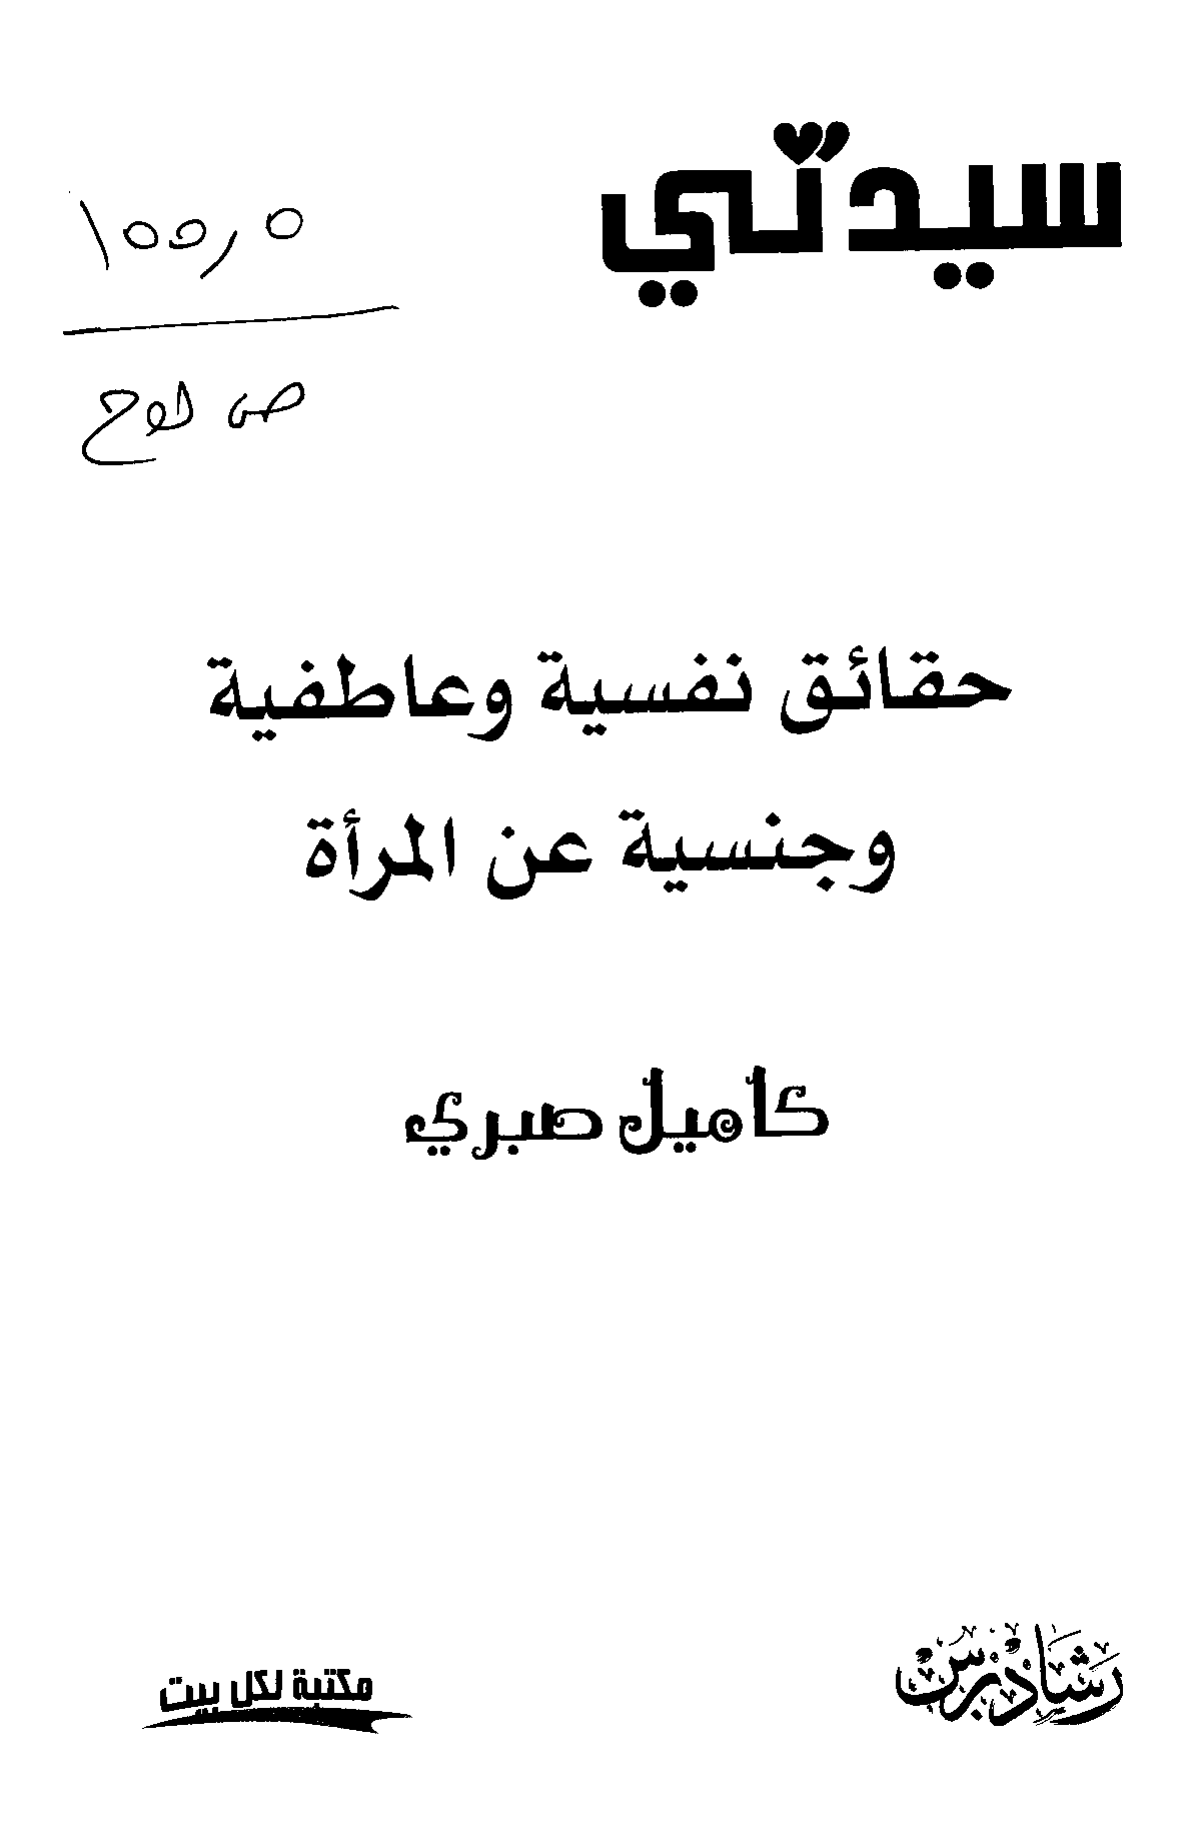 سيدتي
١٥٥,٥
حقائق نفسية وعاطفية
وجنسية عن المرأة
كاميل صبري
رشاد برس
مكتبة لكل بيت